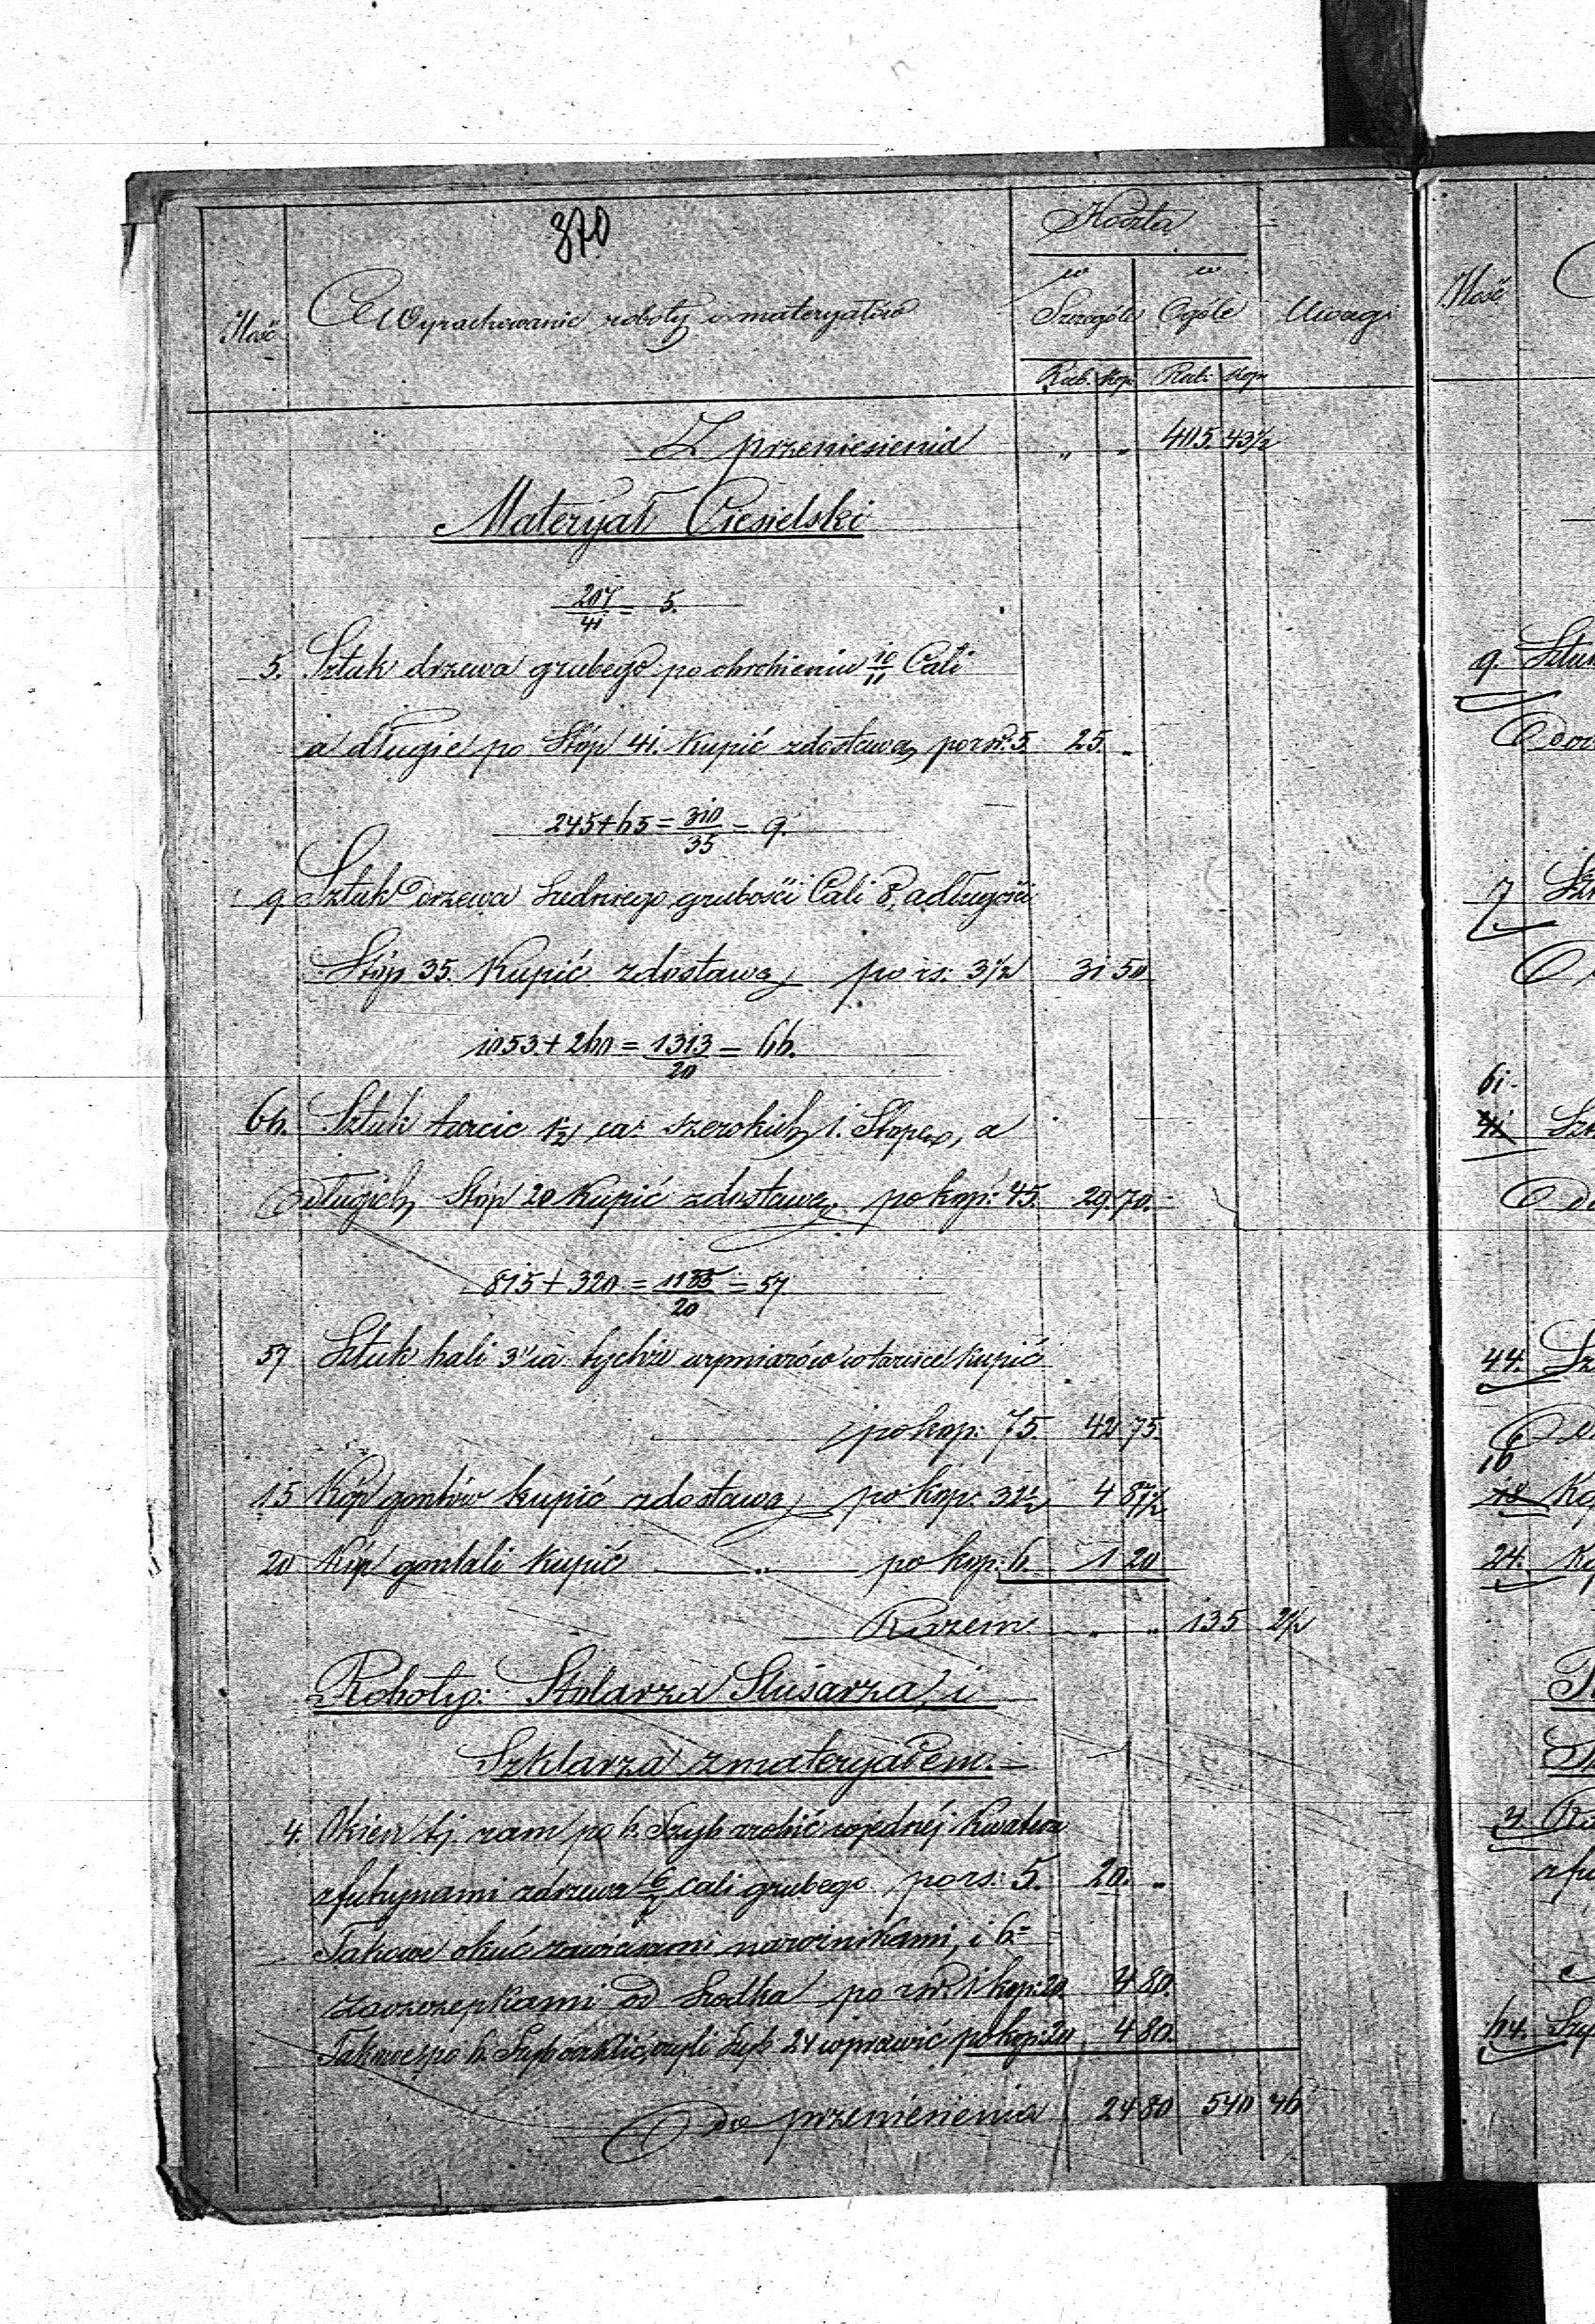 370
Koszta
Ilość
Wyrachowanie roboty i materyałów
w
Szczególe
w
Ogóle
Uwagi
Rub. kop. Rub. kop.
Z przeniesienia " " 405. 43½
Materyał Ciesielski
207/41 = 5.
5. Sztuk drzewa grubego po obrobieniu 10/11 Cali
a długie po Stóp 41. Kupić zdostawą po rs. 5. 25. "
245+65 = 310/35 = 9.
9 Sztuk Drzewa Średniego grubości Cali 8, a długości
Stóp 35. Kupić zdostawą po rs: 3½ 31 50
1053 + 260 = 1313/20 = 66.
66. Sztuk tarcic 1½ cal: szerokich 1. Stopę, a
Długich Stóp 20 Kupić zdostawą po kop: 45. 29. 70.
815 + 320 = 1135/20 = 57
57 Sztuk bali 3" tychże wymiarów co tarcice kupić
po kop: 75. 42 75.
15 Kóp gontów kupić zdostawą po kop: 32½ 4 87½
20 Kóp gontali Kupić " po kop: 6. 1 20
Razem " " 135 2½
Roboty: Stolarza Ślusarza, i
Szklarza z materyałem.
4. Okien tj. ram po 6. Szyb zrobić w jednéj Kwaterze
zfutrynami z drzewa 6/7 cali grubego po rs: 5. 20. "
Takowe okuć zawiasami narożnikami, i 6.
zaszczepkami od Środka po rs. 1 kop: 20. 4 80.
Takowe po 6. Szyb oszklić, czyli Szyb 24 wprawić po kop: 20 4 80.
Do przeniesienia 24 80 540 46
Ilość
9. Sztuk
7
61
41
44.
16
18
24.
4.
64. Szyb